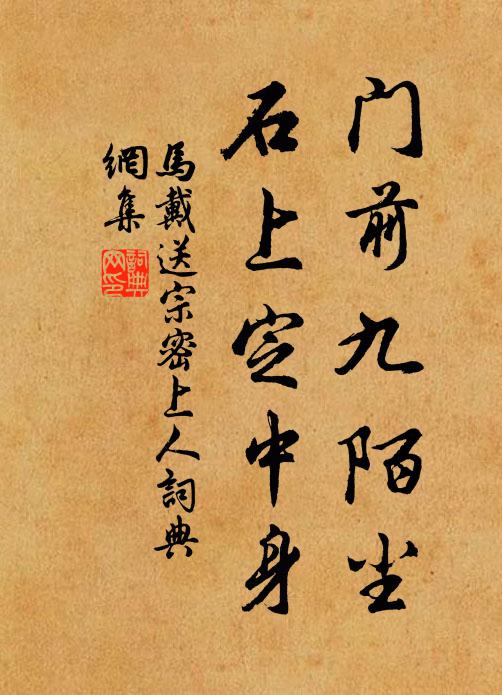 门前九陌尘
石上定中身
馬戴送宗密上人詞典
網集
詞典
网印